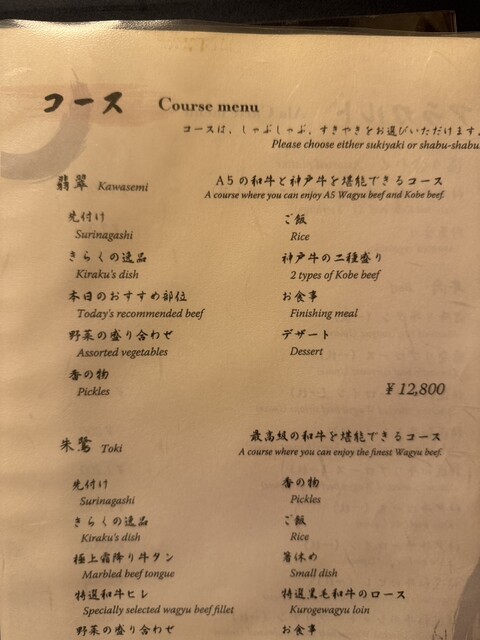 コース Course menu
コースは、しゃぶしゃぶ、すきやきをお選びいただけます
Please choose either sukiyaki or shabu-shabu
翡翠 Kawasemi A5の和牛と神戸牛を堪能できるコース
A course where you can enjoy A5 Wagyu beef and Kobe beef.
先付け
Surinagashi
きらくの逸品
Kiraku's dish
本日のおすすめ部位
Today's recommended beef
野菜の盛り合わせ
Assorted vegetables
香の物
Pickles
ご飯
Rice
神戸牛の二種盛り
2 types of Kobe beef
お食事
Finishing meal
デザート
Dessert
¥12,800
朱鷺 Toki 最高級の和牛を堪能できるコース
A course where you can enjoy the finest Wagyu beef.
先付け
Surinagashi
きらくの逸品
Kiraku's dish
極上霜降り牛タン
Marbled beef tongue
特選和牛ヒレ
Specially selected wagyu beef fillet
野菜の盛り合わせ
香の物
Pickles
ご飯
Rice
箸休め
Small dish
特選黒毛和牛のロース
Kurogewagyu loin
お食事